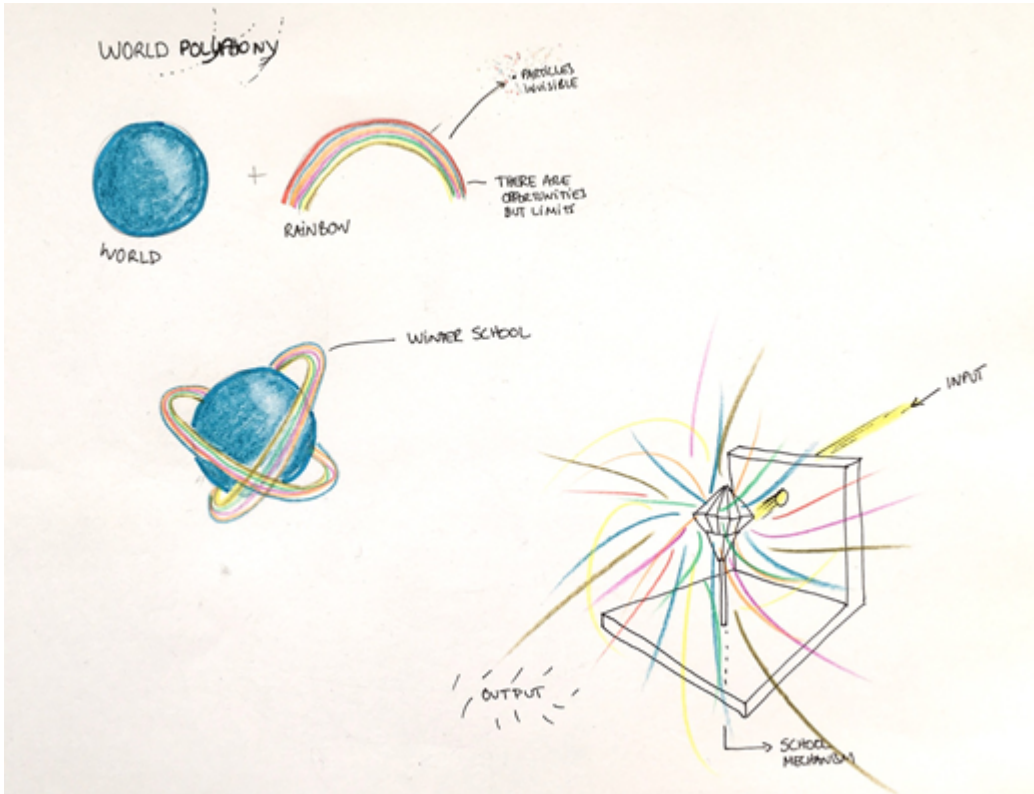 WORLD POLYPHONY
PARTICLES
INVISIBLE
+
THERE ARE
OPPORTUNITIES
BUT LIMITS
RAINBOW
WORLD
WINTER SCHOOL
INPUT
OUTPUT
SCHOOL
MECHANISM